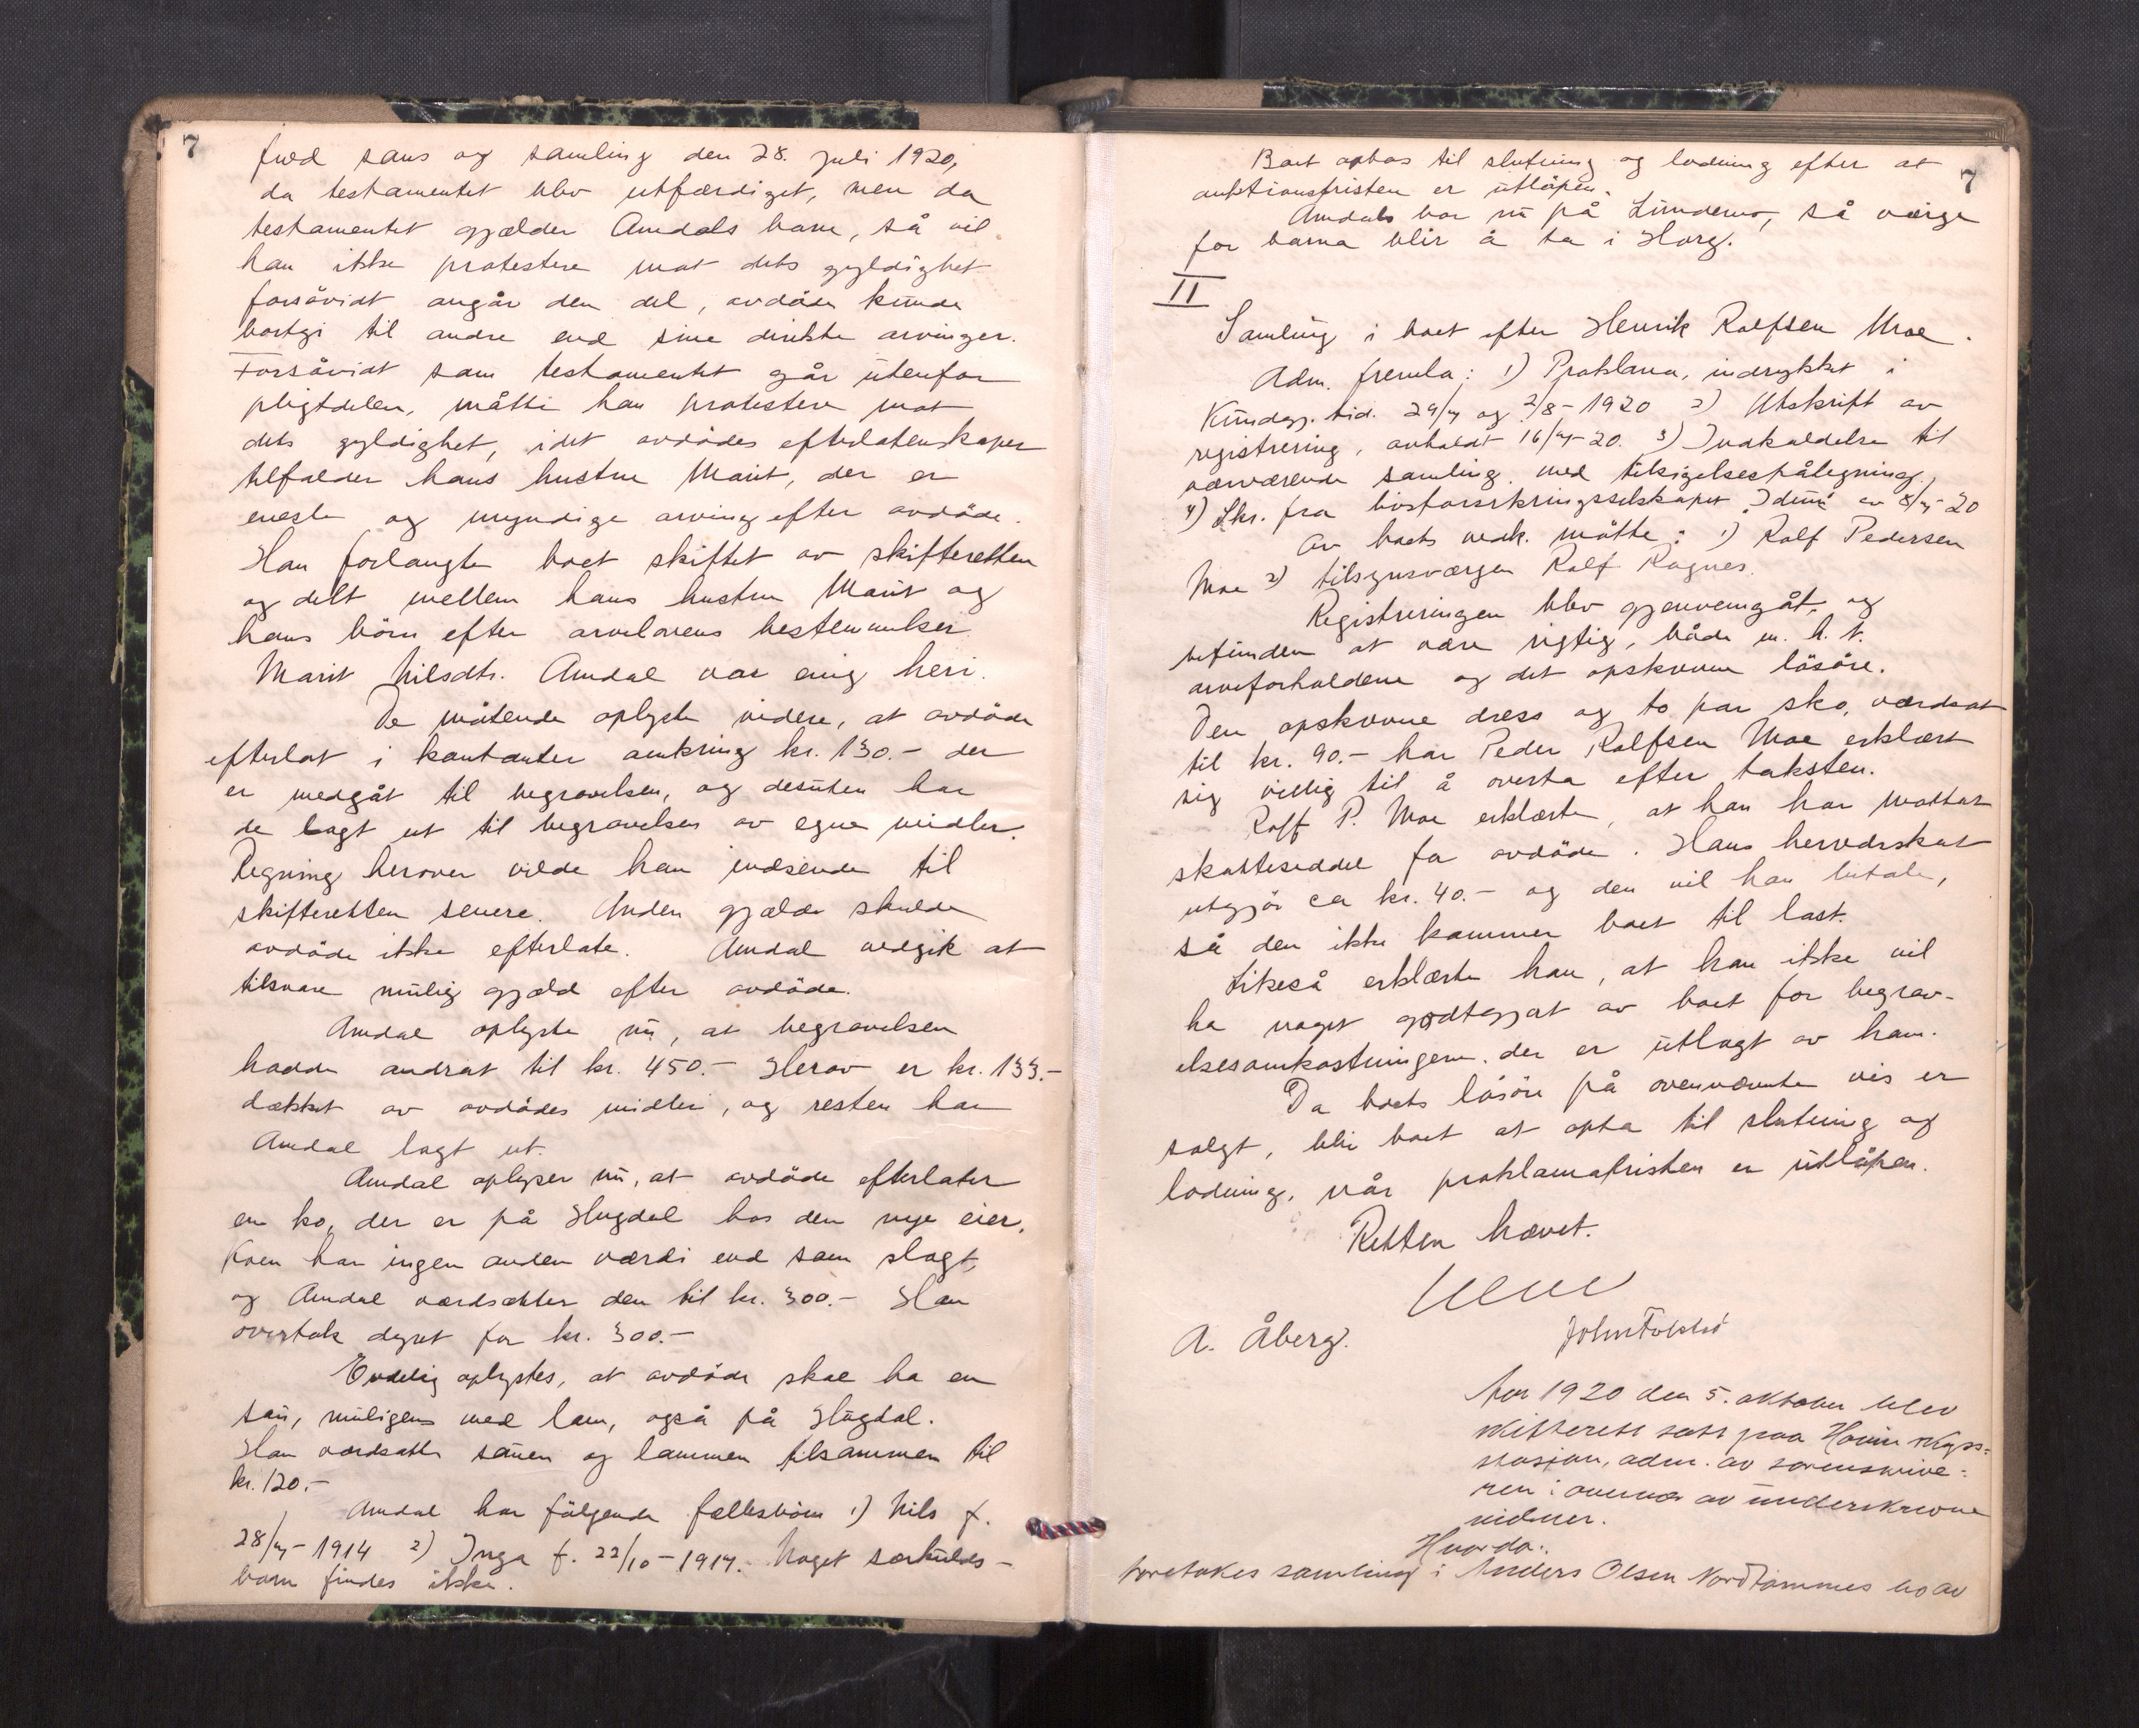 7
fuld sans og samling den 28. juli 1920,
da testamentet blev utfærdiget, men da
testamentet gjælder Amdals barn, så vil
han ikke protestere mot dets gyldighet
forsåvidt angår den del, avdøde kunde
bortgi til andre end sine direkte arvinger.
Forsåvidt som testamentet går utenfor
pligtdelen, måtte han protestere mot
dets gyldighet, idet avdødes efterlatenskaper
tilfalder hans hustru Marit, der er
eneste og myndige arving efter avdøde.
Han forlangte boet skiftet av skifteretten
og delt mellem hans hustru Marit og
hans børn efter arvelovens bestemmelser.
Marit Nilsdtr. Amdal var enig heri.
De møtende oplyste videre, at avdøde
efterlot i kontanter omkring kr. 130.- der
er medgåt til begravelsen, og desuten har
de lagt ut til begravelsen av egne midler.
Regning herover vilde han indsende til
skifteretten senere. Anden gjæld skulde
avdøde ikke efterlate. Amdal vedgik at
tilsvare mulig gjæld efter avdøde.
Amdal oplyste nu, at begravelsen
hadde andrat til kr. 450.- Herav er kr. 133.-
dækket av avdødes midler, og resten har
Amdal lagt ut.
Amdal oplyser nu, at avdøde efterlater
en ko, der er på Hugdal hos den nye eier.
Koen har ingen anden værdi end som slagt,
og Amdal værdsætter den til kr. 300.- Han
overtok dyret for kr. 300.-
Endelig oplystes, at avdøde skal ha en
sau, muligens med lam, også på Hugdal.
Han værdsatte sauen og lammen tilsammen til
kr. 120.-
Amdal har følgende fællesbørn 1) Nils f.
28/4-1914 2) Inga f. 22/10-1917. Noget særkulds-
barn findes ikke.
7
Boet optas til slutning og lodning efter at
auktionsfristen er utløpen.
Amdals bor nu på Lundemo, så værge
for barna blir å ta i Horg.
II
Samling i boet efter Henrik Rolfsen Moe.
Adm. fremla: 1) Proklama, indrykket i
Kundgj. tid. 29/7 og 2/8-1920 2) Utskrift av
registrering, avholdt 16/7-20. 3) Indkaldelse til
nærværende samling med tilsigelsespåtegning.
4) Skr. fra livsforsikringsselskapet "Idun" av 8/7-20
Av boets vedk. møtte: 1) Rolf Pedersen
Moe 2) tilsynsværgen Rolf Rognes.
Registreringen blev gjennemgåt og
befunden at være rigtig, både m. h. t.
arveforholdene og det opskrevne løsøre.
Den opskrevne dress og to par sko, værdsat
til kr. 90.- har Peder Rolfsen Moe erklært
sig villig til å overta efter taksten.
Rolf P. Moe erklærte, at han har mottat
skatteseddel for avdøde. Hans herredsskat
utgjør ca kr. 40.- og den vil han betale,
så den ikke kommer boet til last.
Likeså erklærte han, at han ikke vil
ha noget godtgjort av boet for begrav-
elsesomkostningene der er utlagt av ham.
Da boets løsøre på ovennævnte vis er
solgt, blir boet at opta til slutning og
lodning, når proklamafristen er utløpen.
Retten hævet.
A. Åberg.
Aar 1920 den 5. oktober blev
skifterett satt paa Hovin skyss-
stasjon, adm. av sorenskrive-
ren i overvær av underskrevne
vidner.
Hvorda:
foretokes samling i Anders Olsen Nordtømmes bo av